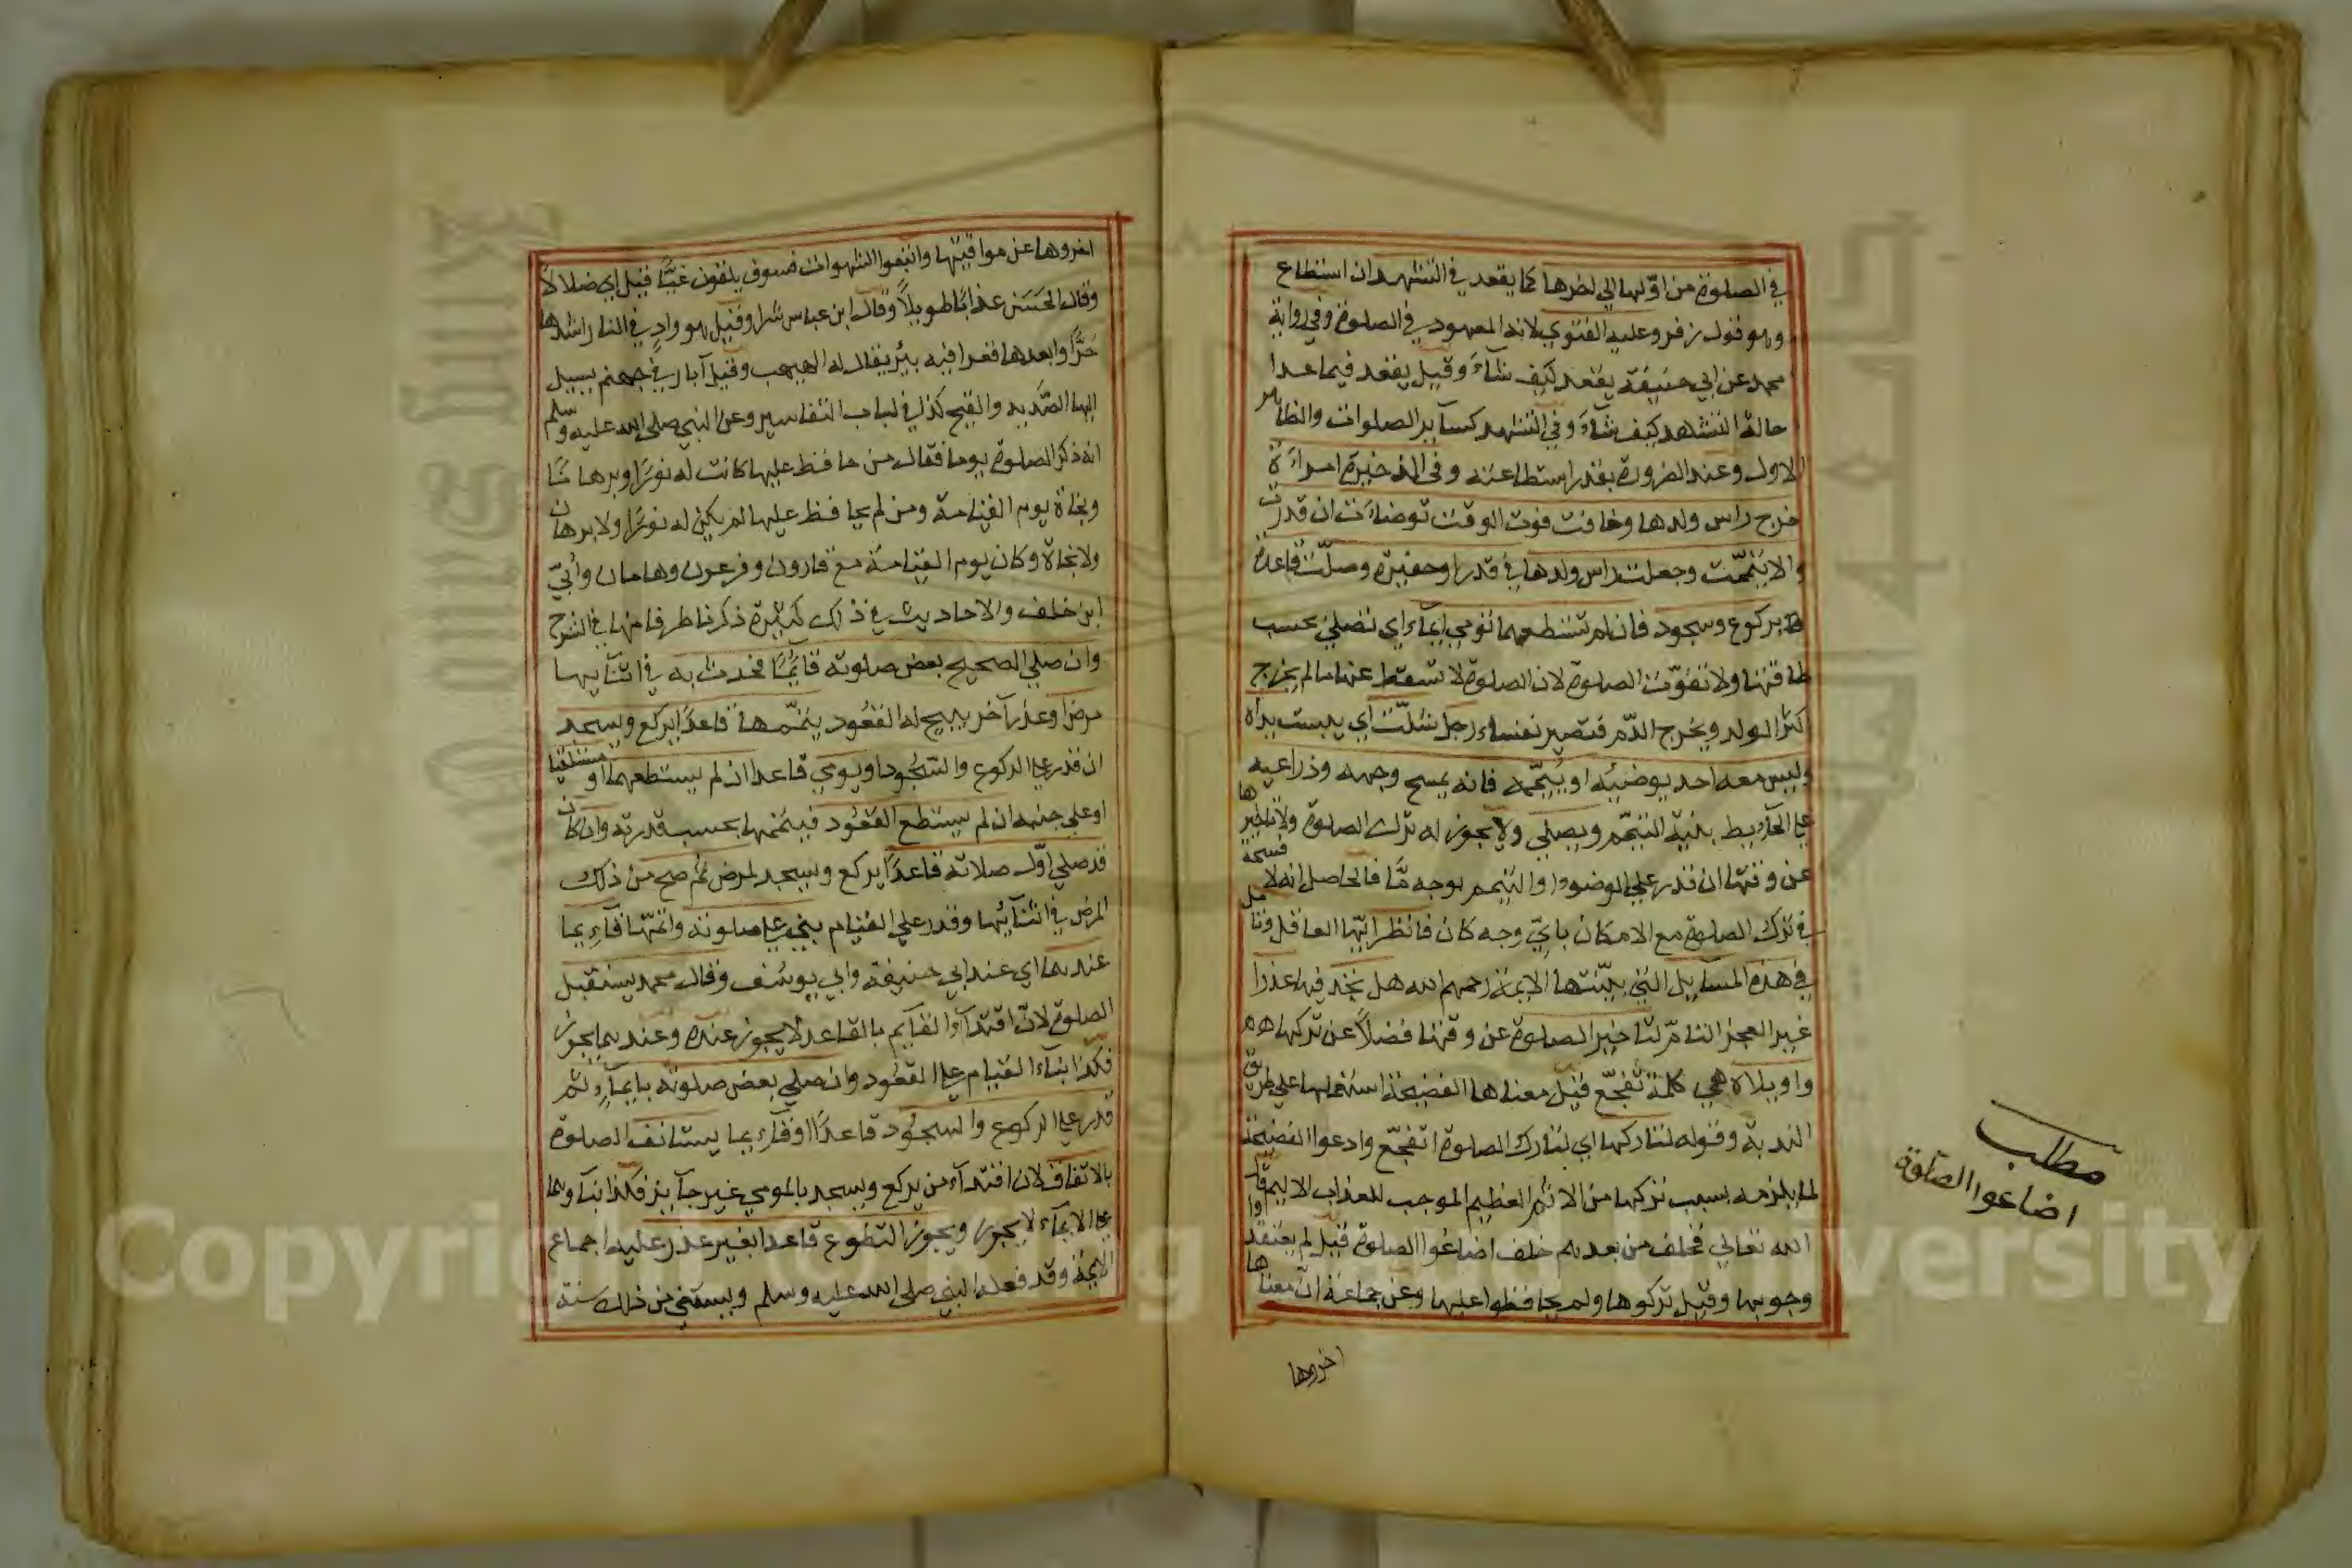 في الصلوة من اوّلها الى اخرها كما يقعد في التشهد ان استطاع
وهو قول زفر وعليه الفتوي لانه المعهود في الصلوة وفي رواية
محمد عن ابي حنيفة يقعد كيف شآء وقيل يقعد فيما عدا
حالة التشهد كيف شآء وفي التشهد كسآير الصلوات والظاهر
الاول وعند الضرورة بقدر استطاعته وفي الذخيرة امراءة
خرج راس ولدها وخافت فوت الوقت توضاءت ان قدرت
والا تيممّت وجعلت راس ولدها في قدر اوحفيرة وصلّت قاعدة
بركوع وسجود فان لم تستطعهما تومي ايمآء اي تصلي بحسب
طاقتها ولا تفوّت الصلوة لان الصلوة لا تسقط عنها مالم يخرج
اكثر الولد ويخرج الدّم فتصير نفساء رجل شلّت اي يبست يداه
وليس معه احد يوضيئه او ييمّمه فانه يمسح وجهه وذراعيه
على الحآيط بنية التيمّم ويصلي ولا يجوز له ترك الصلوة ولا تاخيرها
عن وقتها ان قدر علي الوضوء او التيمم بوجه مّا فالحاصل انه لا فسحة
في ترك الصلوة مع الامكان بايّ وجه كان فانظر ايّها العاقل وتامل
في هذه المسآيل التي بيّنتها الايمة رحمهم الله هل تجد فيها عذرا
غير العجز التامّ لتاخير الصلوة عن وقتها فضلاً عن تركها
واويلاه هي كلمة تفجّع قيل معناها الفضيحة استعملها علي طريق
الندبة وقوله لتاركها اي لتارك الصلوة اتفجّع وادعوا الفضيحة
لما يلزمه بسبب تركها من الاثم العظيم الموجب للعذاب الاليم قال
الله تعالي فخلف من بعدهم خلف اضاعوا الصلوة قيل لم يعتقدوا
وجوبها وقيل تركوها ولم يحافظوا عليها وعن جماعة انّ معناها
اخروها
مطلب
اضاعوا الصلوة
اخروها عن مواقيتها واتبعوا الشهوات فسوف يلقون غيًّا قيل اي ضلالا
وقال الحسن عذابًا طويلاً وقال ابن عباس شرا وقيل هو وادٍ في النار اشدها
حرًّا وابعدها قعرا فيه بئر يقال له الهيهب وقيل آبار في جهنم يسيل
اليها الصّديد والقيح كذا في لباب التفاسير وعن النبي صلى الله عليه وسلم
انه ذكر الصلوة يوما فقال من حافظ عليها كانت له نورًا وبرهانًا
ونجاة يوم القيامة ومن لم يحافظ عليها لم يكن له نورًا ولا برهان
ولا نجاة وكان يوم القيامة مع قارون وفرعون وهامان وأُبيّ
ابن خلف والاحاديث في ذلك كثيرة ذكرنا طرفا منها في الشرح
وان صلي الصحيح بعض صلوته قايمًا فحدث به في اثنآيها
مرض او عذر آخر يبيح له القعُود يتمّمها قاعدًا يركع ويسجد
ان قدر على الركوع والسّجُود او يومي قاعدا ان لم يستطعهما او مستلقيا
او علي جنبه ان لم يستطع القعُود فيتمّمها بحسب قدرته وان كان
قد صلي اوّل صلاته قاعدًا يركع ويسجد لمرض ثم صح من ذلك
المرض في اثنآئها وقدر علي القيام بني على صلوته واتمّها قآيما
عندهما اي عند ابي حنيفة وابي يوسُف وقال محمد يستقبل
الصلوة لانّ اقتدآء القآيم بالقاعد لا يجوز عنده وعندهما يجوز
فكذا بنآء القيام على القعُود وان صلي بعض صلوته بايمآءٍ ثم
قدر على الركوع والسجُود قاعدًا او قآيما يستانف الصلوة
بالاتفاق لان اقتدآء من يركع ويسجد بالمومي غير جآيز فكذا بنآوهما
على الايمآء لا يجوز ويجوز التطوع قاعدا بغير عذر عليه اجماع
الايمة وقد فعله النبي صلى الله عليه وسلم ويستثني من ذلك سنة